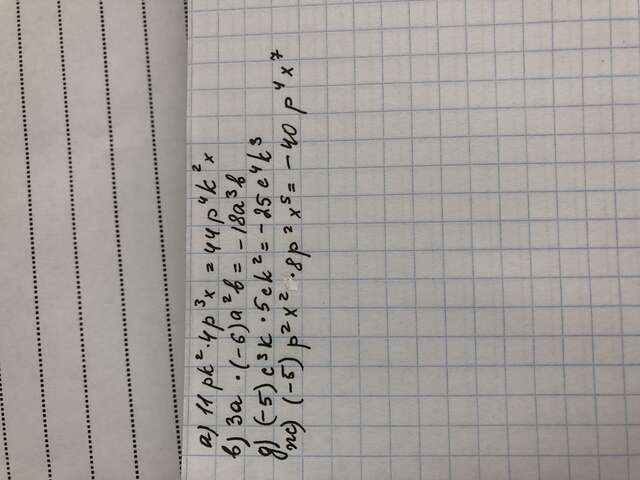 а) 11 pk² · 4p³x = 44p⁴k²x
в) 3a · (-6)a²b = -18a³b
д) (-5)c³k · 5ck² = -25c⁴k³
ж) (-5) p²x² · 8p²x⁵ = -40 p⁴x⁷